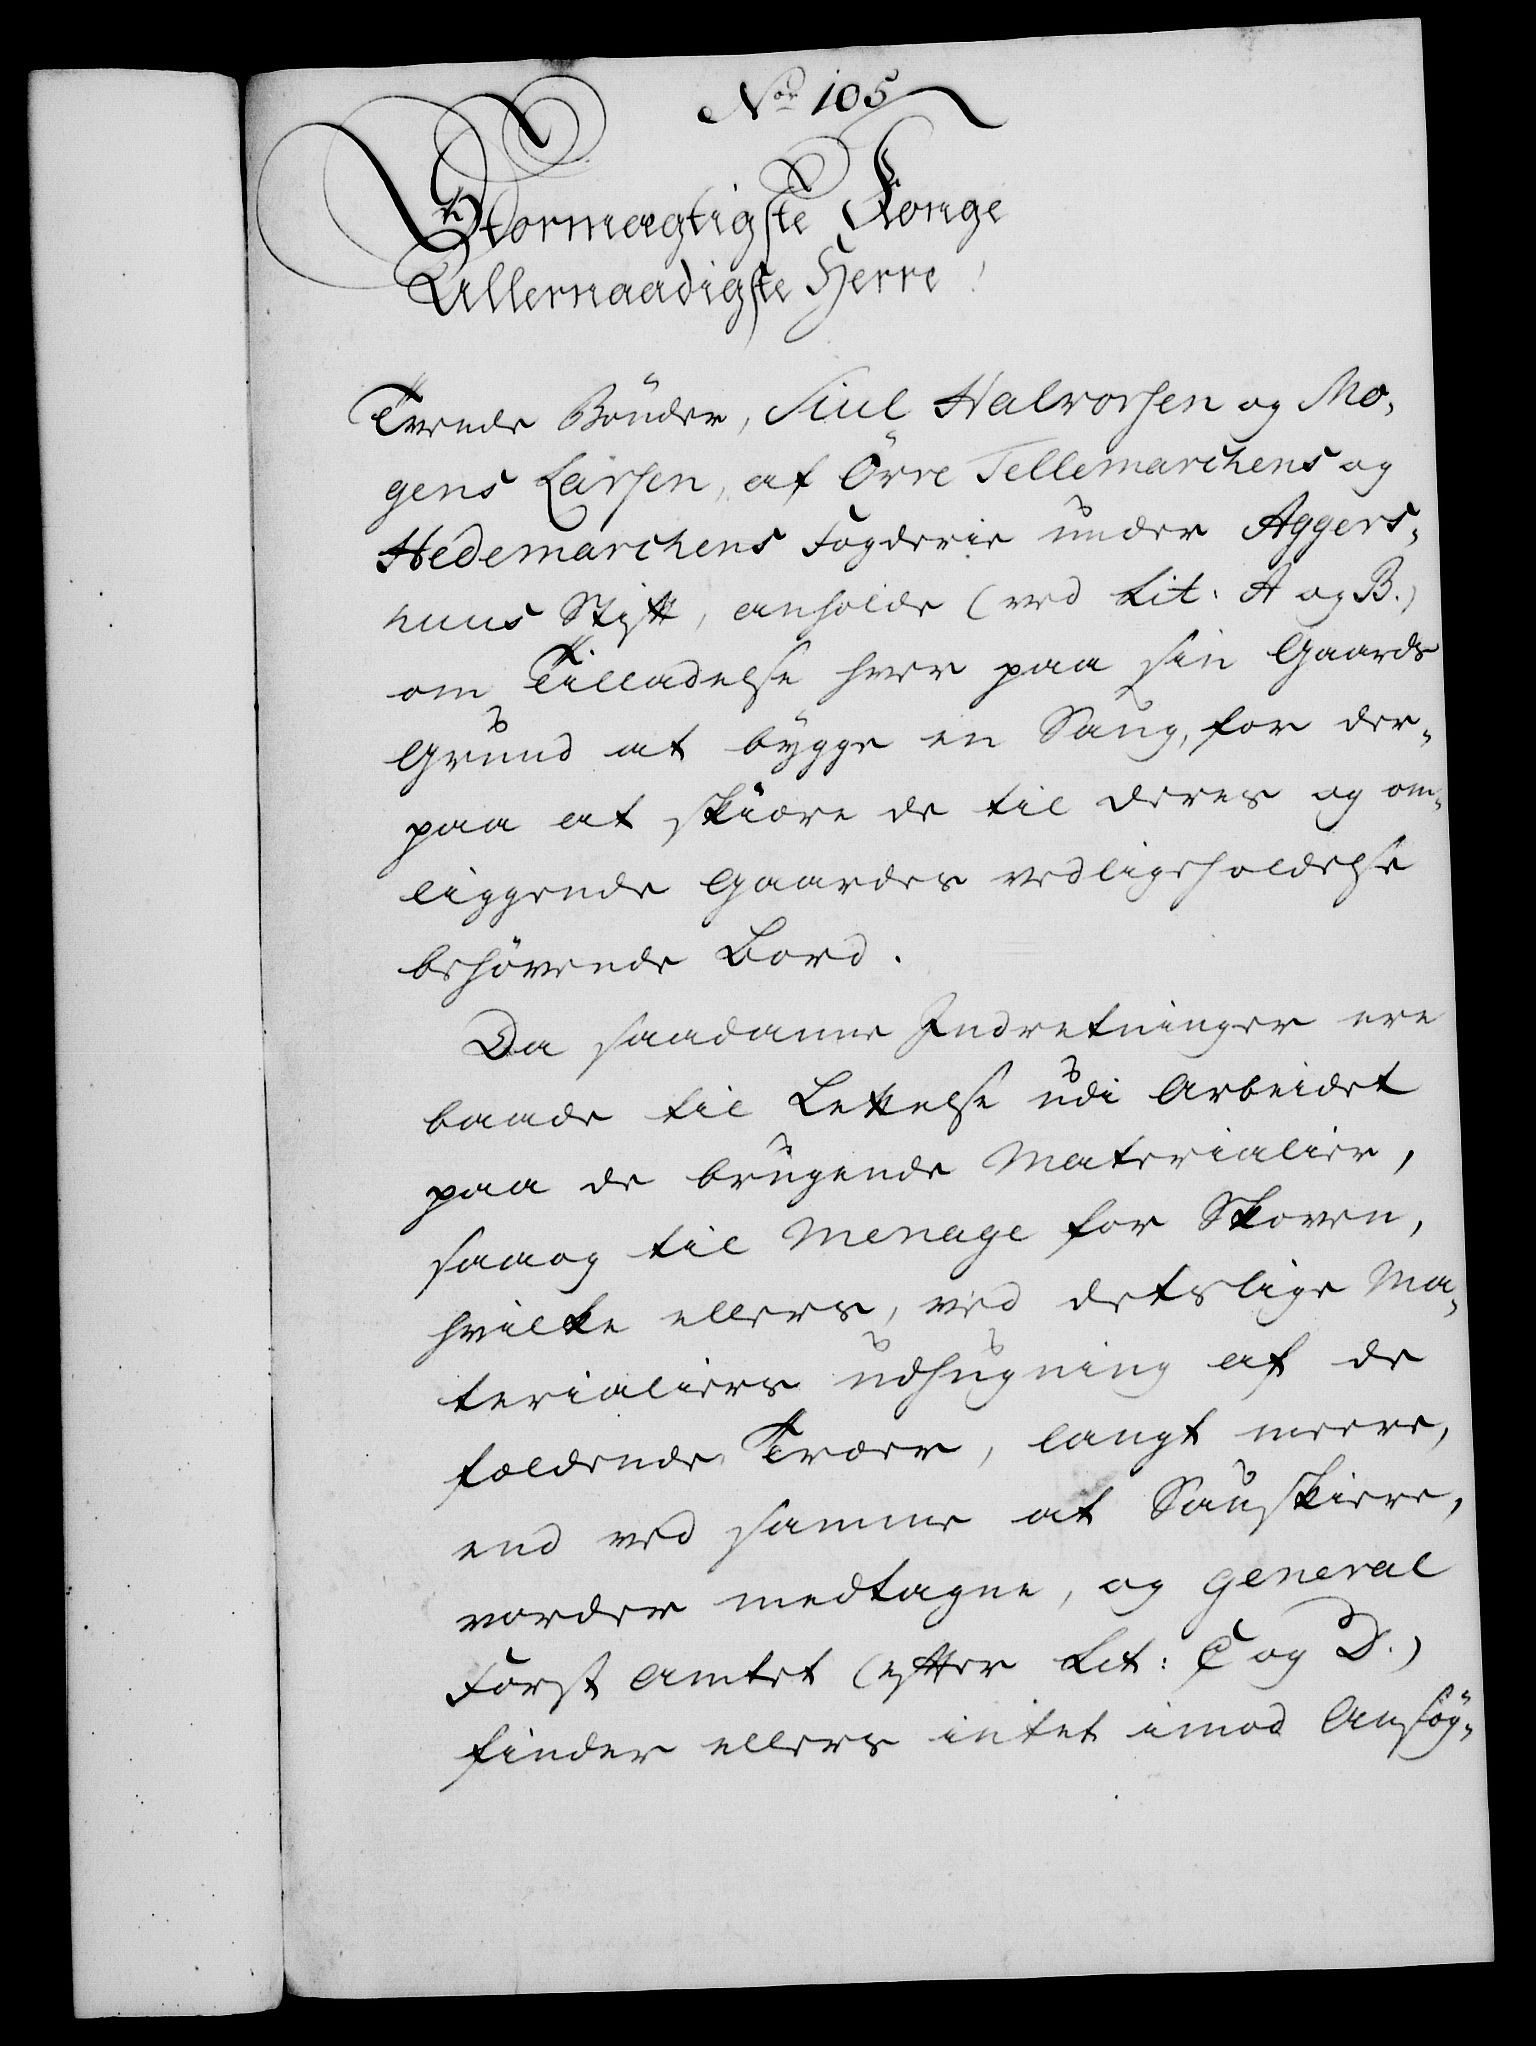 No 105
Stormægtigste Konge
Allernaadigste Herre!
Tvende Bönder, Siul Halvorsen og Mo-
gens Larsen, af Övre Tellemarchens og
Hedemarchens Fogderie under Aggers-
huus Stift, anholde (ved Lit: A og B.)
om Tilladelse hver paa sin Gaards
Grund at bygge en Saug, for der-
paa at skiære de til deres og om-
liggende Gaardes vedligeholdelse
behövende Bord.
Da saadanne Indretninger ere
baade til Lettelse udi Arbeidet
paa de brugende Materialier,
saaog til Menage for Skoven,
hvilke ellers, ved detslige Ma-
terialiers udhugning af de
fældende Træer, langt meere,
end ved samme at Saugskiere,
vorder medtagne, og General
Forst Amtet (efter Lit: C og D.)
finder ellers intet imod Ansög-